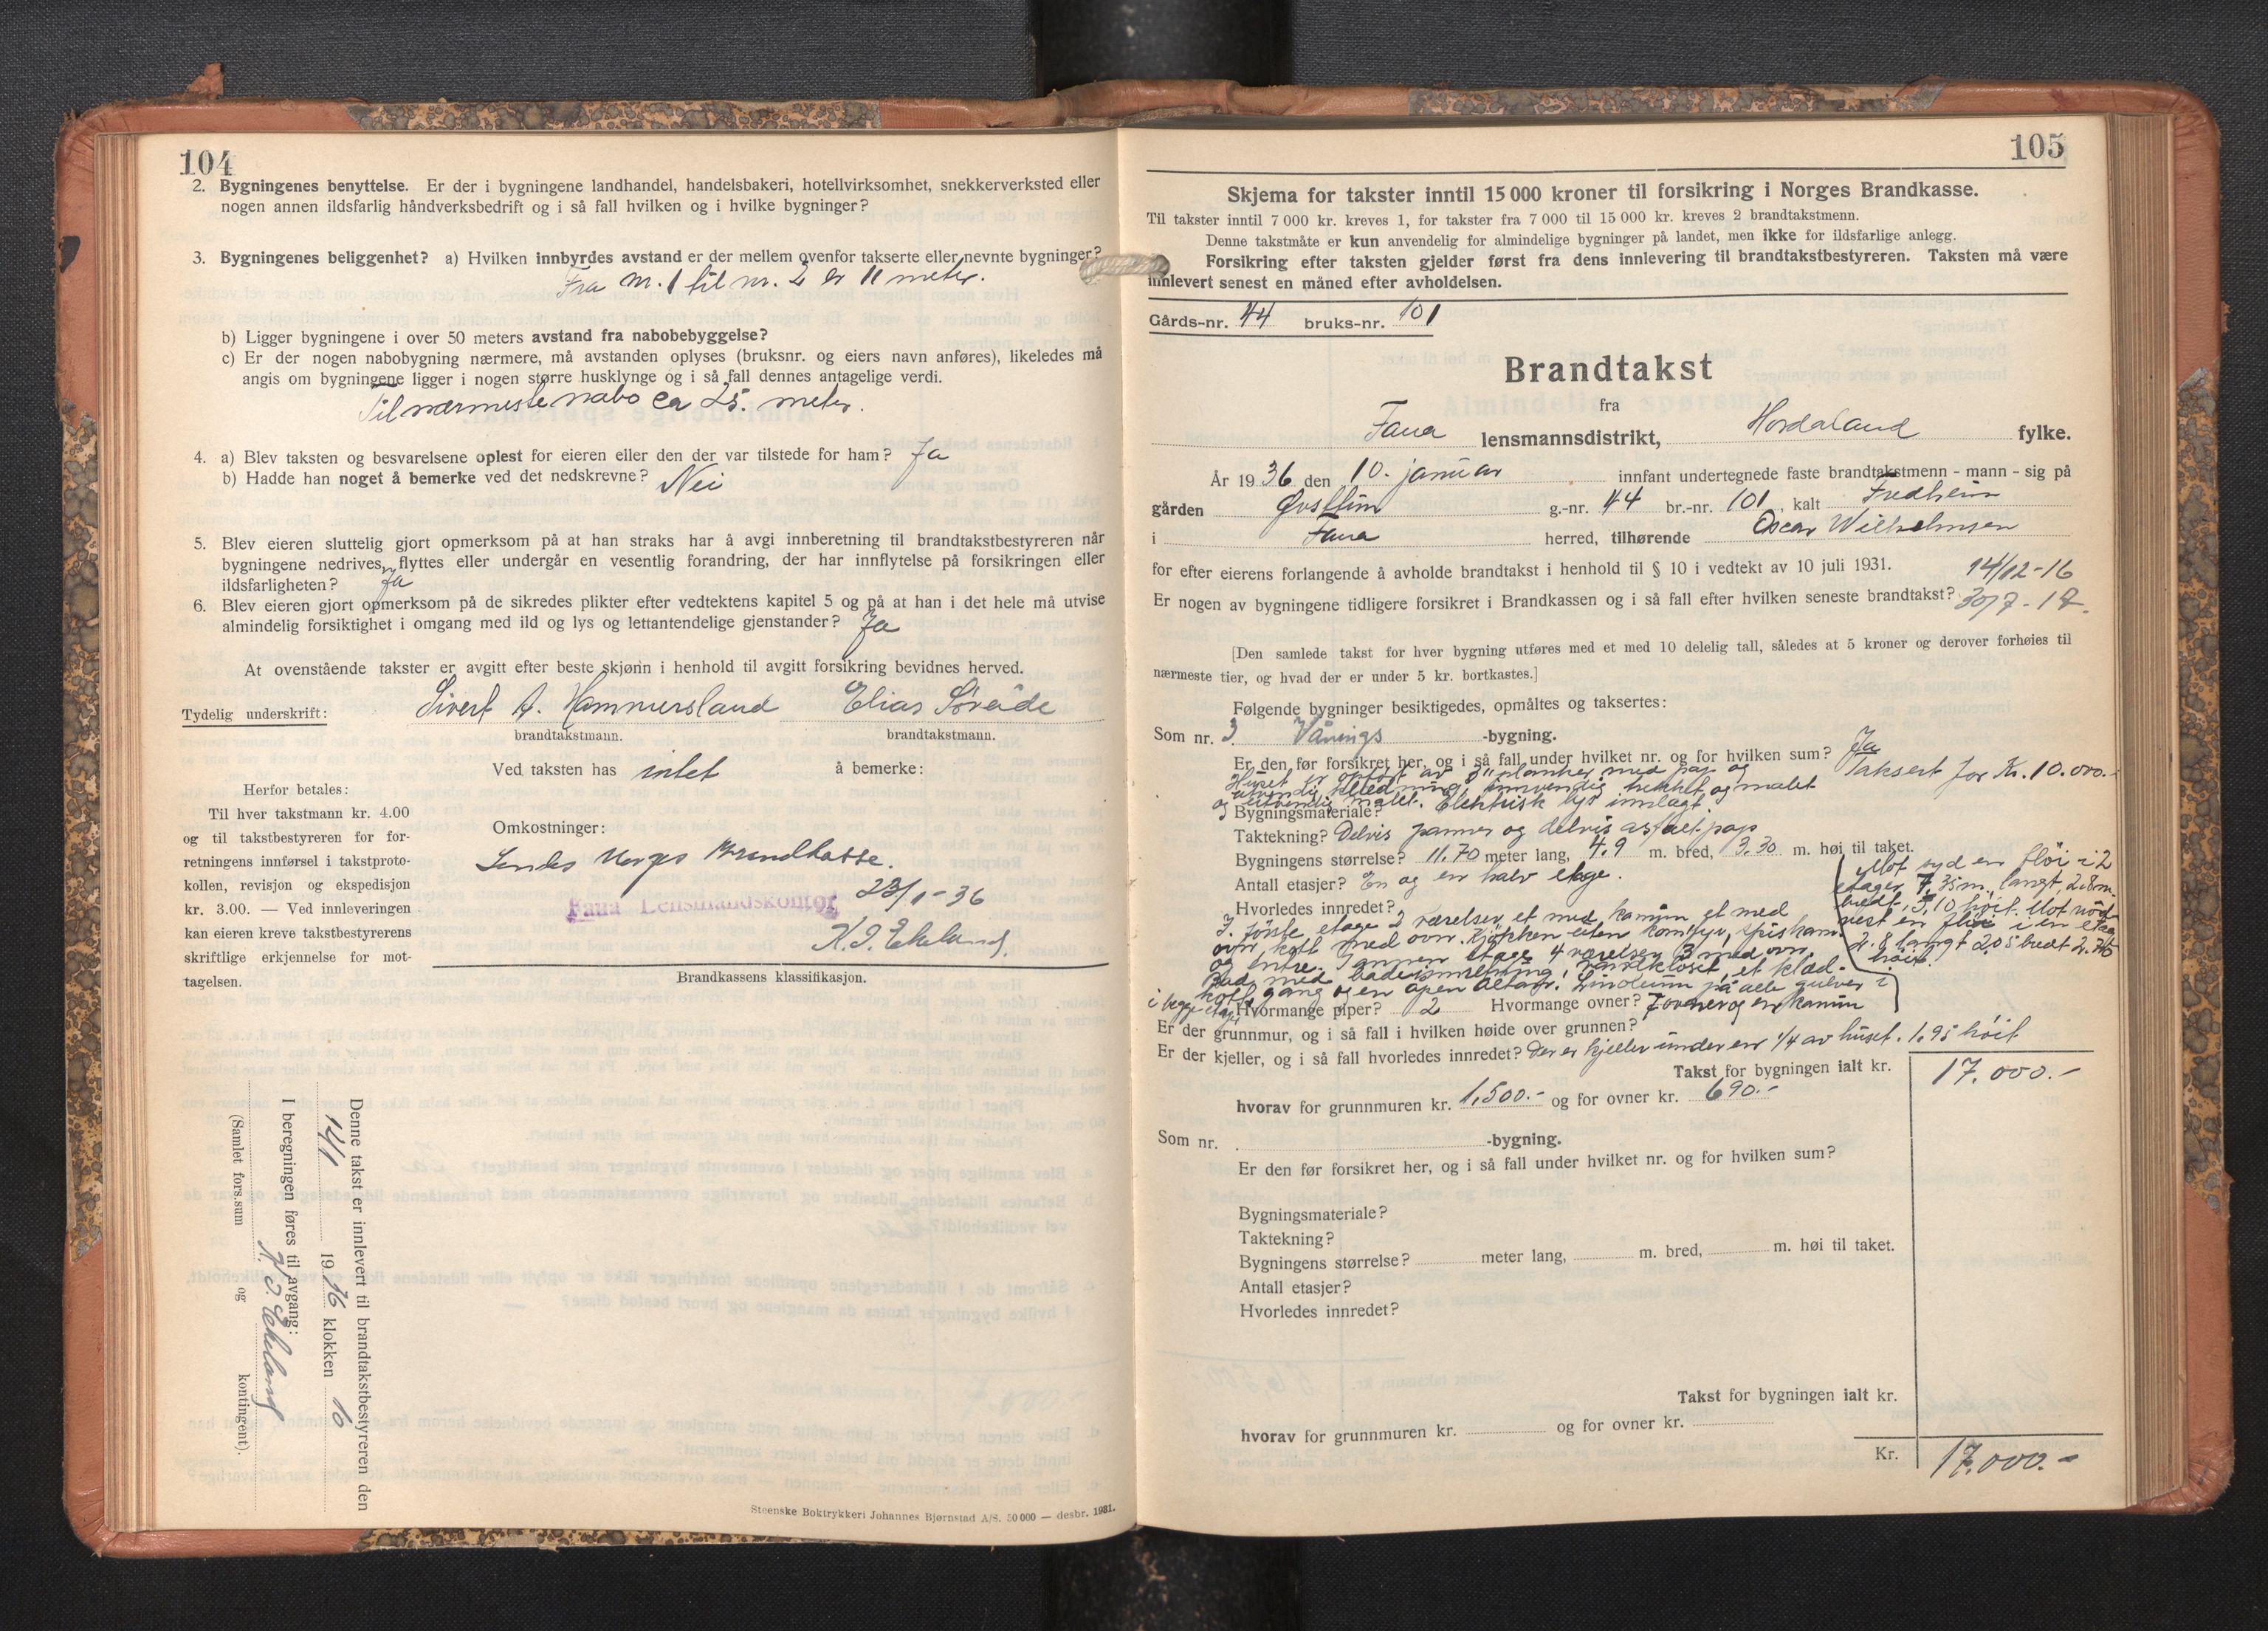 104
2. Bygningenes benyttelse. Er der i bygningene landhandel, handelsbakeri, hotellvirksomhet, snekkerverksted eller
nogen annen ildsfarlig håndverksbedrift og i så fall hvilken og i hvilke bygninger?
3. Bygningenes beliggenhet? a) Hvilken innbyrdes avstand er der mellem ovenfor takserte eller nevnte bygninger?
Fra nr. 1 til nr. 2 er 11 meter.
b) Ligger bygningene i over 50 meters avstand fra nabobebyggelse?
c) Er der nogen nabobygning nærmere, må avstanden oplyses (bruksnr. og eiers navn anføres), likeledes må
angis om bygningene ligger i nogen større husklynge og i så fall dennes antagelige verdi.
Til nærmeste nabo ca 25. meter.
4. a) Blev taksten og besvarelsene oplest for eieren eller den der var tilstede for ham? Ja
b) Hadde han noget å bemerke ved det nedskrevne? Nei
5. Blev eieren sluttelig gjort opmerksom på at han straks har å avgi innberetning til brandtakstbestyreren når
bygningene nedrives, flyttes eller undergår en vesentlig forandring, der har innflytelse på forsikringen eller
ildsfarligheten? Ja
6. Blev eieren gjort opmerksom på de sikredes plikter efter vedtektens kapitel 5 og på at han i det hele må utvise
almindelig forsiktighet i omgang med ild og lys og lettantendelige gjenstander? Ja
At ovenstående takster er avgitt efter beste skjønn i henhold til avgitt forsikring bevidnes herved.
Tydelig underskrift: Sivert A. Hammersland Elias Søreide
brandtakstmann. brandtakstmann.
Ved taksten has intet å bemerke:
Herfor betales:
Til hver takstmann kr. 4.00
og til takstbestyreren for for-
retningens innførsel i takstproto-
kollen, revisjon og ekspedisjon
kr. 3.00. — Ved innleveringen
kan eieren kreve takstbestyrerens
skriftlige erkjennelse for mot-
tagelsen.
Omkostninger:
Sendes Norges Brandkasse.
23/1-36
Fana Lensmandskontor
K. J. Ekeland
Brandkassens klassifikasjon.
Denne takst er innlevert til brandtakstbestyreren den
14/1 1936 klokken 10
I beregningen føres til avgang:
K. J. Ekeland
(Samlet fors.sum og kontingent).
Steenske Boktrykkeri Johannes Bjørnstad A/S. 50 000 — desbr. 1931.
105
Skjema for takster inntil 15 000 kroner til forsikring i Norges Brandkasse.
Til takster inntil 7 000 kr. kreves 1, for takster fra 7 000 til 15 000 kr. kreves 2 brandtakstmenn.
Denne takstmåte er kun anvendelig for almindelige bygninger på landet, men ikke for ildsfarlige anlegg.
Forsikring efter taksten gjelder først fra dens innlevering til brandtakstbestyreren. Taksten må være
innlevert senest en måned efter avholdelsen.
Gårds-nr. 44 bruks-nr. 101
Brandtakst
fra
Fana lensmannsdistrikt, Hordaland fylke.
År 1936 den 10. januar innfant undertegnede faste brandtakstmenn - mann - sig på
gården Øvsttun g.-nr. 44 br.-nr. 101, kalt Fredheim
i Fana herred, tilhørende Oscar Wilhelmsen
for efter eierens forlangende å avholde brandtakst i henhold til § 10 i vedtekt av 10 juli 1931. 14/12-16
Er nogen av bygningene tidligere forsikret i Brandkassen og i så fall efter hvilken seneste brandtakst? 30/7-18.
[Den samlede takst for hver bygning utføres med et med 10 delelig tall, således at 5 kroner og derover forhøies til
nærmeste tier, og hvad der er under 5 kr. bortkastes.]
Følgende bygninger besiktigedes, opmåltes og taksertes:
Som nr. 3 Vånings -bygning.
Er den før forsikret her, og i så fall under hvilket nr. og for hvilken sum? Ja
Taksert for Kr. 10.000.-
Huset er opført av 3" planker med pap og
utvendig kledning, innvendig trekket og malet
og utvendig malet. Elektrisk lys innlagt.
Bygningsmateriale?
Taktekning? Delvis panner og delvis asfaltpap
Bygningens størrelse? 11.70 meter lang, 4.9 m. bred, 3.30 m. høi til taket.
Antall etasjer? En og en halv etage.
Mot syd en fløi i 2
etager 7.35 m. langt, 2.8 m.
bredt, 5.10 høit. Mot nord
vest en fløi i en etage
2.8 langt 2.05 bredt 2.75
høit.
Hvorledes innredet?
I første etage 2 værelser, et med kamin et med
ovn, kott med ovn. Kjøkken uten komfyr, spiskam.
og entre. I annen etage 4 værelser 3 med ovn,
bad med badeinnretning, vannkloset, et klæd-
kott, gang og en åpen altan. Linoleum på alle gulver i
i begge etager
Hvormange piper? 2 Hvormange ovner? 7 ovner og en kamin
Er der grunnmur, og i så fall i hvilken høide over grunnen?
Er der kjeller, og i så fall hvorledes innredet? Der er kjeller under en 1/4 av huset. 1.95 høit
Takst for bygningen ialt kr. 17.000.-
hvorav for grunnmuren kr. 1.500.- og for ovner kr. 690.-
Som nr. -bygning.
Er den før forsikret her, og i så fall under hvilket nr. og for hvilken sum?
Bygningsmateriale?
Taktekning?
Bygningens størrelse? meter lang, m. bred, m. høi til taket.
Antall etasjer?
Hvorledes innredet?
Takst for bygningen ialt kr.
hvorav for grunnmuren kr. og for ovner kr.
Kr. 17.000.-